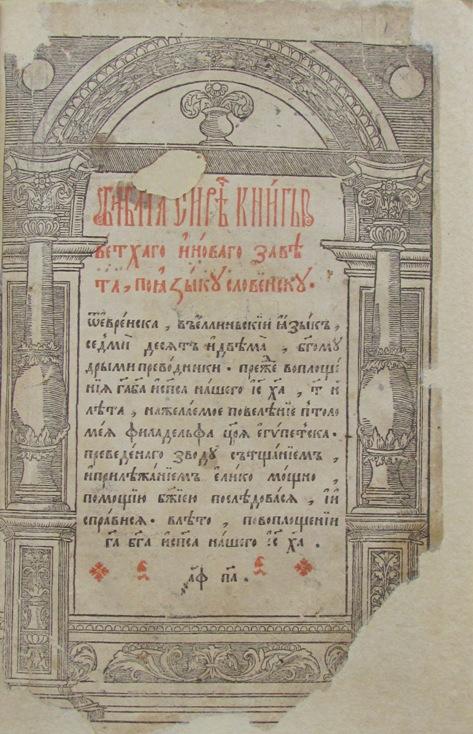 Би́блїа си́рѣ кни́гы
ветхаго и҆новаго завѣ
та, поꙗ҆зы́кꙋ словенскꙋ.
Ѿеврейска, въеллиньскїй ꙗ҆зыкъ,
седмїю десѧтъ и҆двѣма̀, бг҃омꙋ
дрыми преводники. преже воплоще
нїѧ гд҃а бг҃а и҆сп҃са нашего і҆с х҃а, т҃ и҆
лѣта, нажелаемое повелѣнїе птоло
меѧ филадельфа цр҃ѧ є҆гѵпетска.
преведенаго зводꙋ сътщанїемъ,
и҆прилѣжанїемъ єлико мощно,
помощїю бж҃їею послѣдовасѧ, и҆
справисѧ. влѣто, повоплощенїи
гд҃а бг҃а и҆сп҃са нашего і҆с х҃а.
҂аф п҃а.